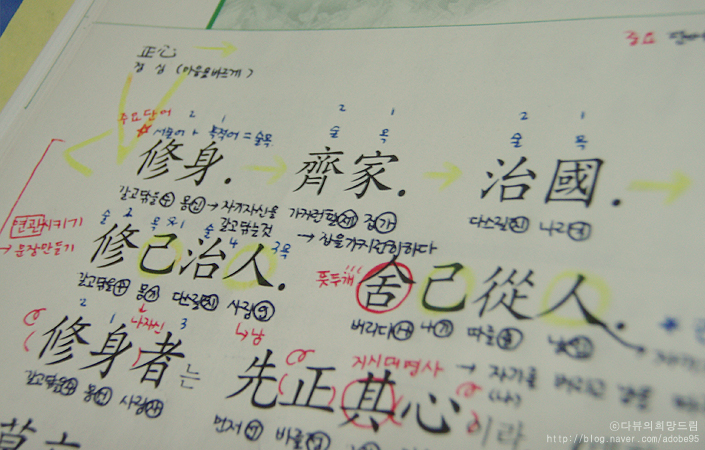 正心
정심 (마음을바르게)
주요 단어
주요단어 2 1 2 1 2 1
서술어 + 목적어 = 술목 술 목 술 목
修身. 齊家. 治國.
갈고닦을수 몸신 → 자기자신을 갈고닦는것 가지런할제 집가 다스릴치 나라국
연관시키기
→ 문장만들기
술 2 목 1 술 4 3목 → 집을가지런히하다
修己治人. 舍己從人.
갈고닦을수 몸기 다스릴치 사람인 버리다사 나기 따를종 남인
나자신 →남
2 1 3 지시대명사 → 자기를 버리고
修身者는 先正其心이라
갈고닦을수 몸신 사람자 먼저선 바를정 (나)
ⓒ다뷰의희망드림
http://blog.naver.com/adobe95